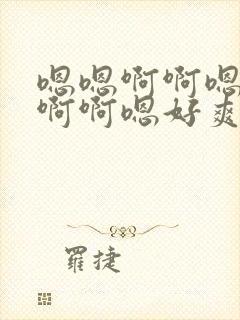 嗯嗯啊啊嗯
啊啊嗯好爽
羅捷